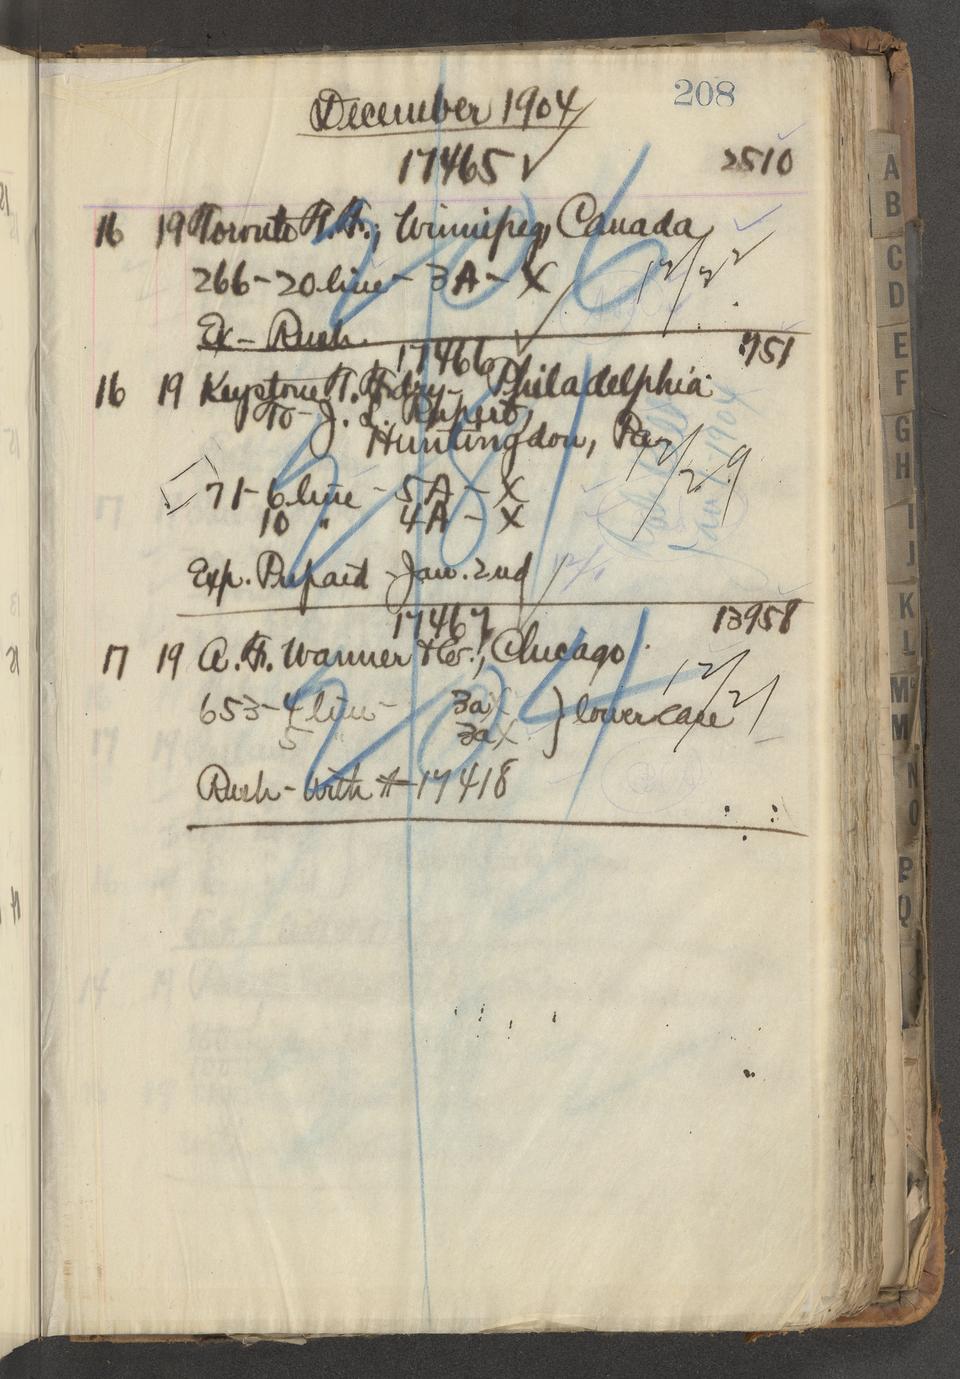 208
December 1904
17465 ✓ 2510
16 19 Toronto T. F., Winnipeg, Canada
266-20 line - 3A - X 12/22
Ex - Rush.
17466 751
16 19 Keystone T. Fndry - Philadelphia
To - J. L. Rupert,
Huntingdon, Pa. 12/29
71-6 line - 5A - X
10 " 4A - X
Exp. Prepaid - Jan. 2nd
17467 13958
17 19 A. F. Wanner & Co., Chicago
653-4 line - 3a X } lower case 12/21
5 " 3a X
Rush - with # 17418
206
281
284
A
B
C
D
E
F
G
H
I
J
K
L
Mc
M
N
O
P
Q